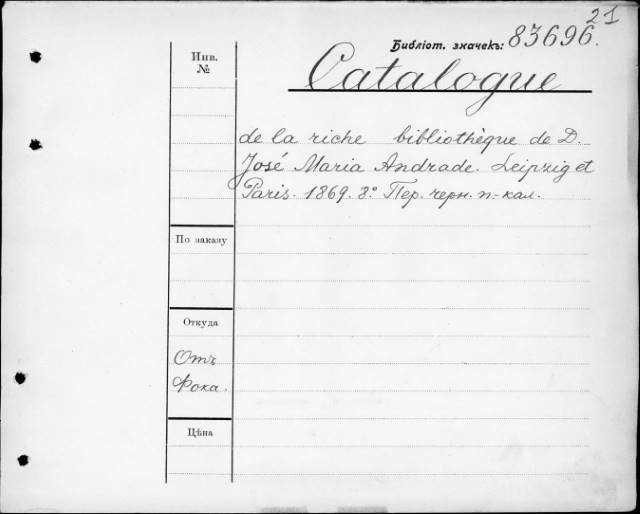 21
Библіот. значекъ: 83696.
Инв.
№
Catalogue
de la riche bibliothèque de D.
José Maria Andrade. Leipzig et
Paris. 1869. 8° Пер. черн. п.-кал.
По заказу
Откуда
Отъ
Фока.
Цѣна